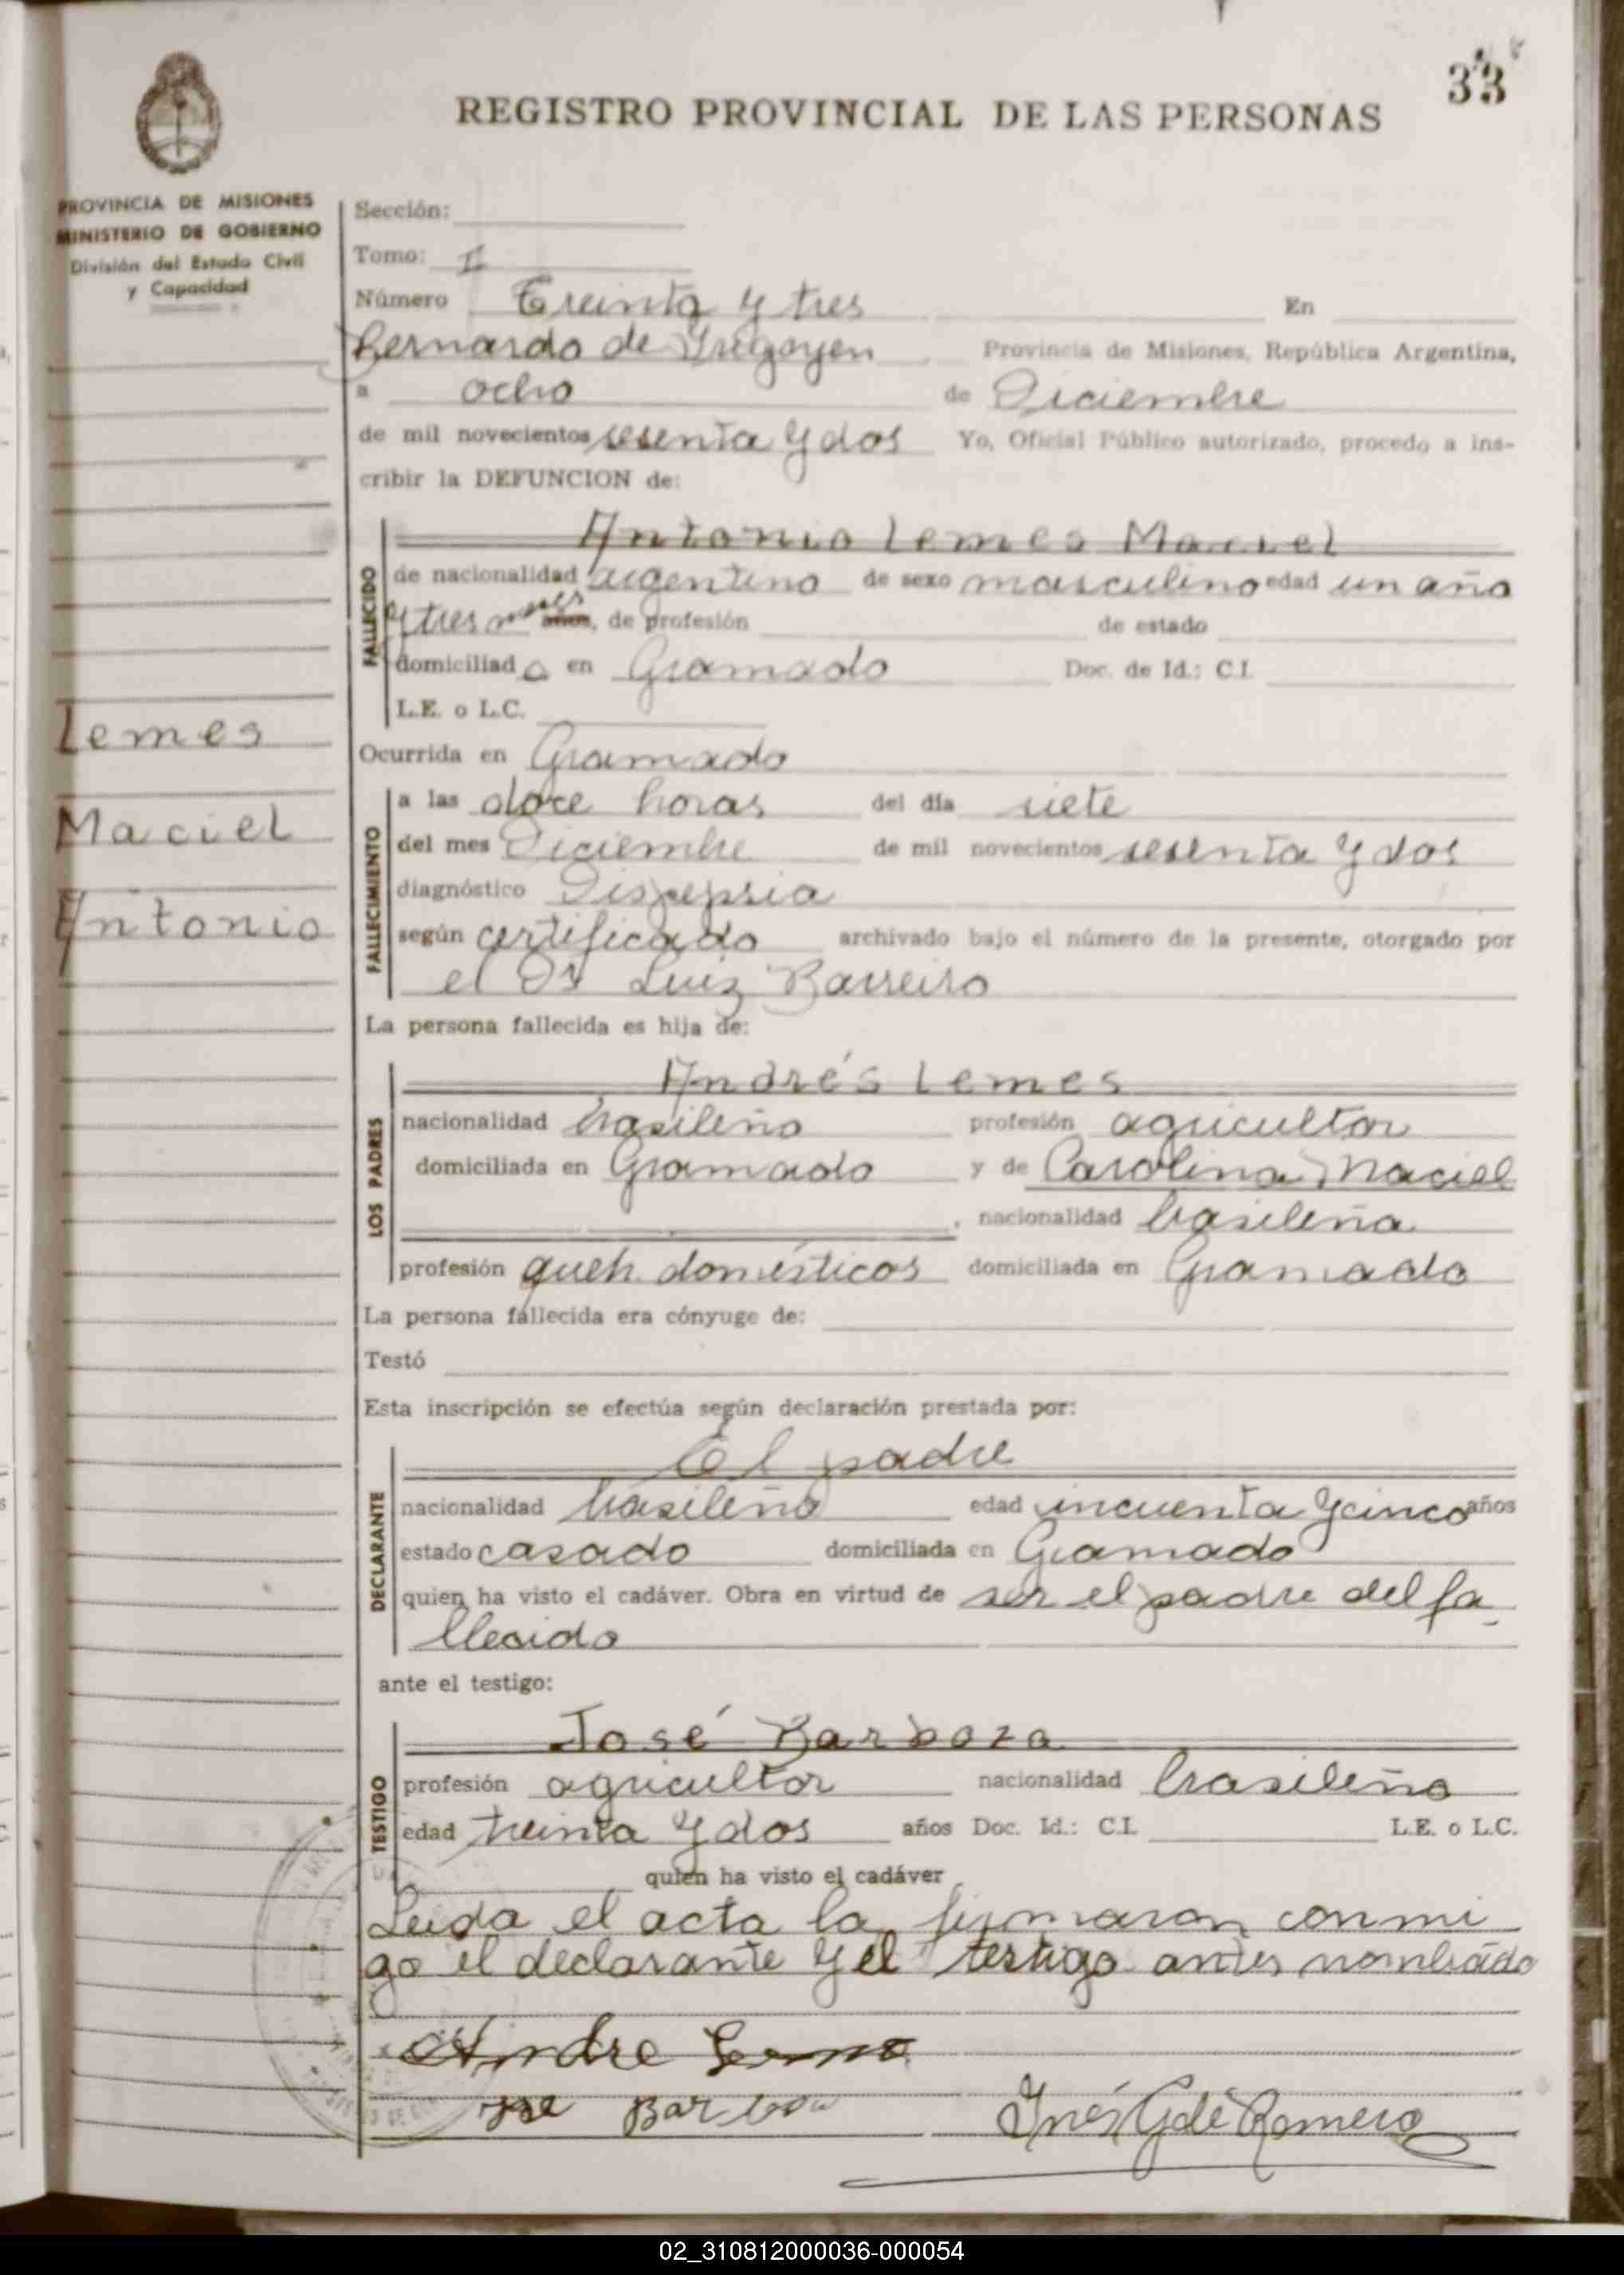 33
REGISTRO PROVINCIAL DE LAS PERSONAS
PROVINCIA DE MISIONES
MINISTERIO DE GOBIERNO
División del Estado Civil
y Capacidad
Sección:
Tomo: II
Número Treinta y tres En
Bernardo de Yrigoyen Provincia de Misiones, República Argentina,
a ocho de Diciembre
de mil novecientos sesenta y dos Yo, Oficial Público autorizado, procedo a ins-
cribir la DEFUNCION de:
FALLECIDO
Antonio Lemes Maciel
de nacionalidad argentino de sexo masculino edad un año
y tres meses años, de profesión de estado
domiciliad o en Gramado Doc. de Id.: C.I.
L.E. o L.C.
Lemes
Maciel
Antonio
Ocurrida en Gramado
FALLECIMIENTO
a las doce horas del día siete
del mes Diciembre de mil novecientos sesenta y dos
diagnóstico Dispepsia
según certificado archivado bajo el número de la presente, otorgado por
el Dr Luiz Barreiro
La persona fallecida es hija de:
LOS PADRES
Andrés Lemes
nacionalidad brasileño profesión agricultor
domiciliada en Gramado y de Carolina Maciel
, nacionalidad brasileña
profesión queh. domésticos domiciliada en Gramado
La persona fallecida era cónyuge de:
Testó
Esta inscripción se efectúa según declaración prestada por:
DECLARANTE
El padre
nacionalidad brasileño edad cincuenta y cinco años
estado casado domiciliada en Gramado
quien ha visto el cadáver. Obra en virtud de ser el padre del fa-
llecido
ante el testigo:
TESTIGO
José Barboza
profesión agricultor nacionalidad brasileño
edad treinta y dos años Doc. Id.: C.I. L.E. o L.C.
quien ha visto el cadáver
Leida el acta la firmaron conmi
go el declarante y el testigo antes nombrado
Andre Lemes
Jose Barboza
Inés G de Romero
02_310812000036-000054